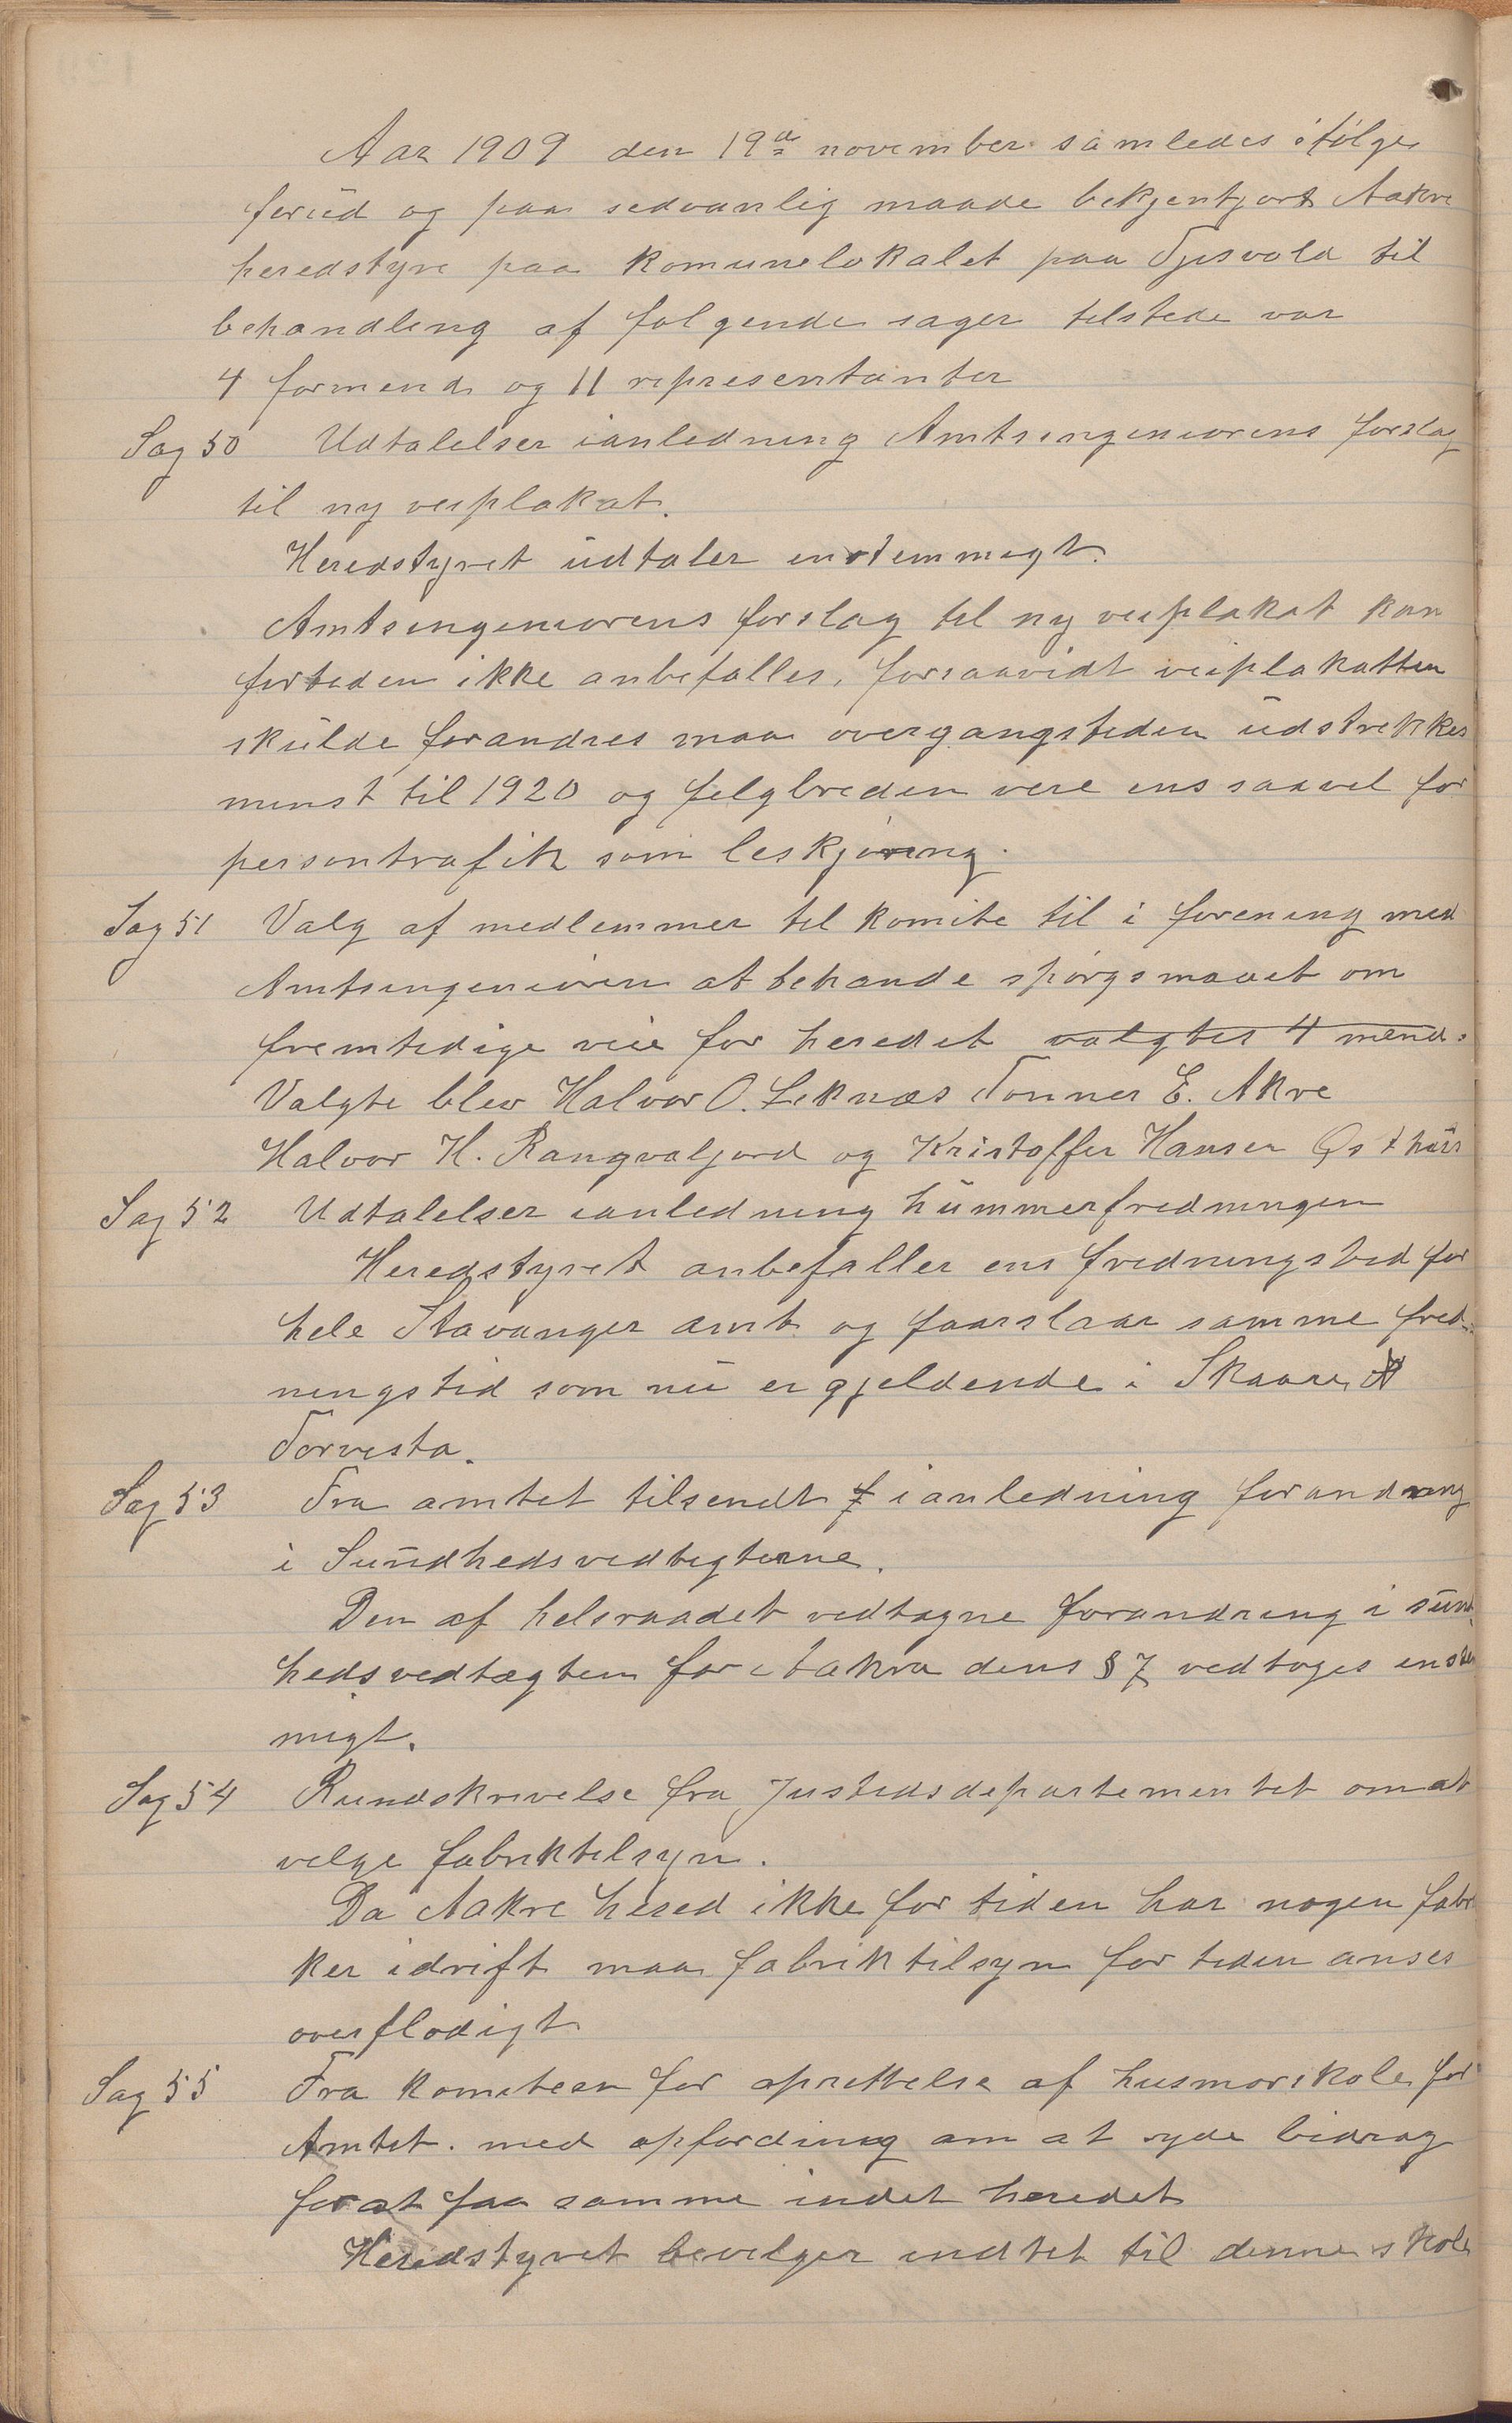 Aar 1909 den 19de november samledes ifølge
forud og paa sedvanlig maade bekjentgjort Aakre
heredstyre paa komunelokalet paa Tjøsvold til
behandling af følgende sager tilstede var
4 formend og 11 representanter
Sag 50 Udtalelser ianledning Amtsingeniørens forslag
til ny veiplakat.
Heredstyret udtaler enstemmigt.
Amtsingeniørens forslag til ny veiplakat kan
fortiden ikke anbefalles, forsaavidt veiplakatten
skulde forandres maa overgangstiden udstrekkes
minst til 1920 og felgbreden vere ens saavel for
persontrafik som leskjøring.
Sag 51 Valg af medlemmer til komite til i forening med
Amtsingeniøren at behande spørgsmaaet om
fremtidige veie for heredet valgtes 4 mend.
Valgte blev Halvor O. Leknæs Tonnes E. Akre
Halvor H. Rangvaljord og Kristoffer Hansen Østhus
Sag 52 Udtalelser ianledning hummerfredningen
Heredstyret anbefaller ens fredningstid for
hele Stavanger amt og faarslaar samme fred-
ningstid som nu er gjeldende i Skaare
Torvesta.
Sag 53 Fra amtet tilsendt ianledning forandring
i Sundhedsvedtegterne.
Den af helsraadet vedtagne forandring i sund-
hedsvedtægten for Aakra dens § 7 vedtoges enstem
migt.
Sag 54 Rundskrivelse fra Justisdepartementet om at
velge fabriktilsyn.
Da Aakre hered ikke for tiden har nogen fabri
ker idrift maa fabriktilsyn for tiden anses
overflødigt
Sag 55 Fra komiteen for oprettelse af husmorskole for
Amtet. med opfording om at yde bidrag
for at faa samme indet heredet
Heredstyret bevilger indtet til denne skole